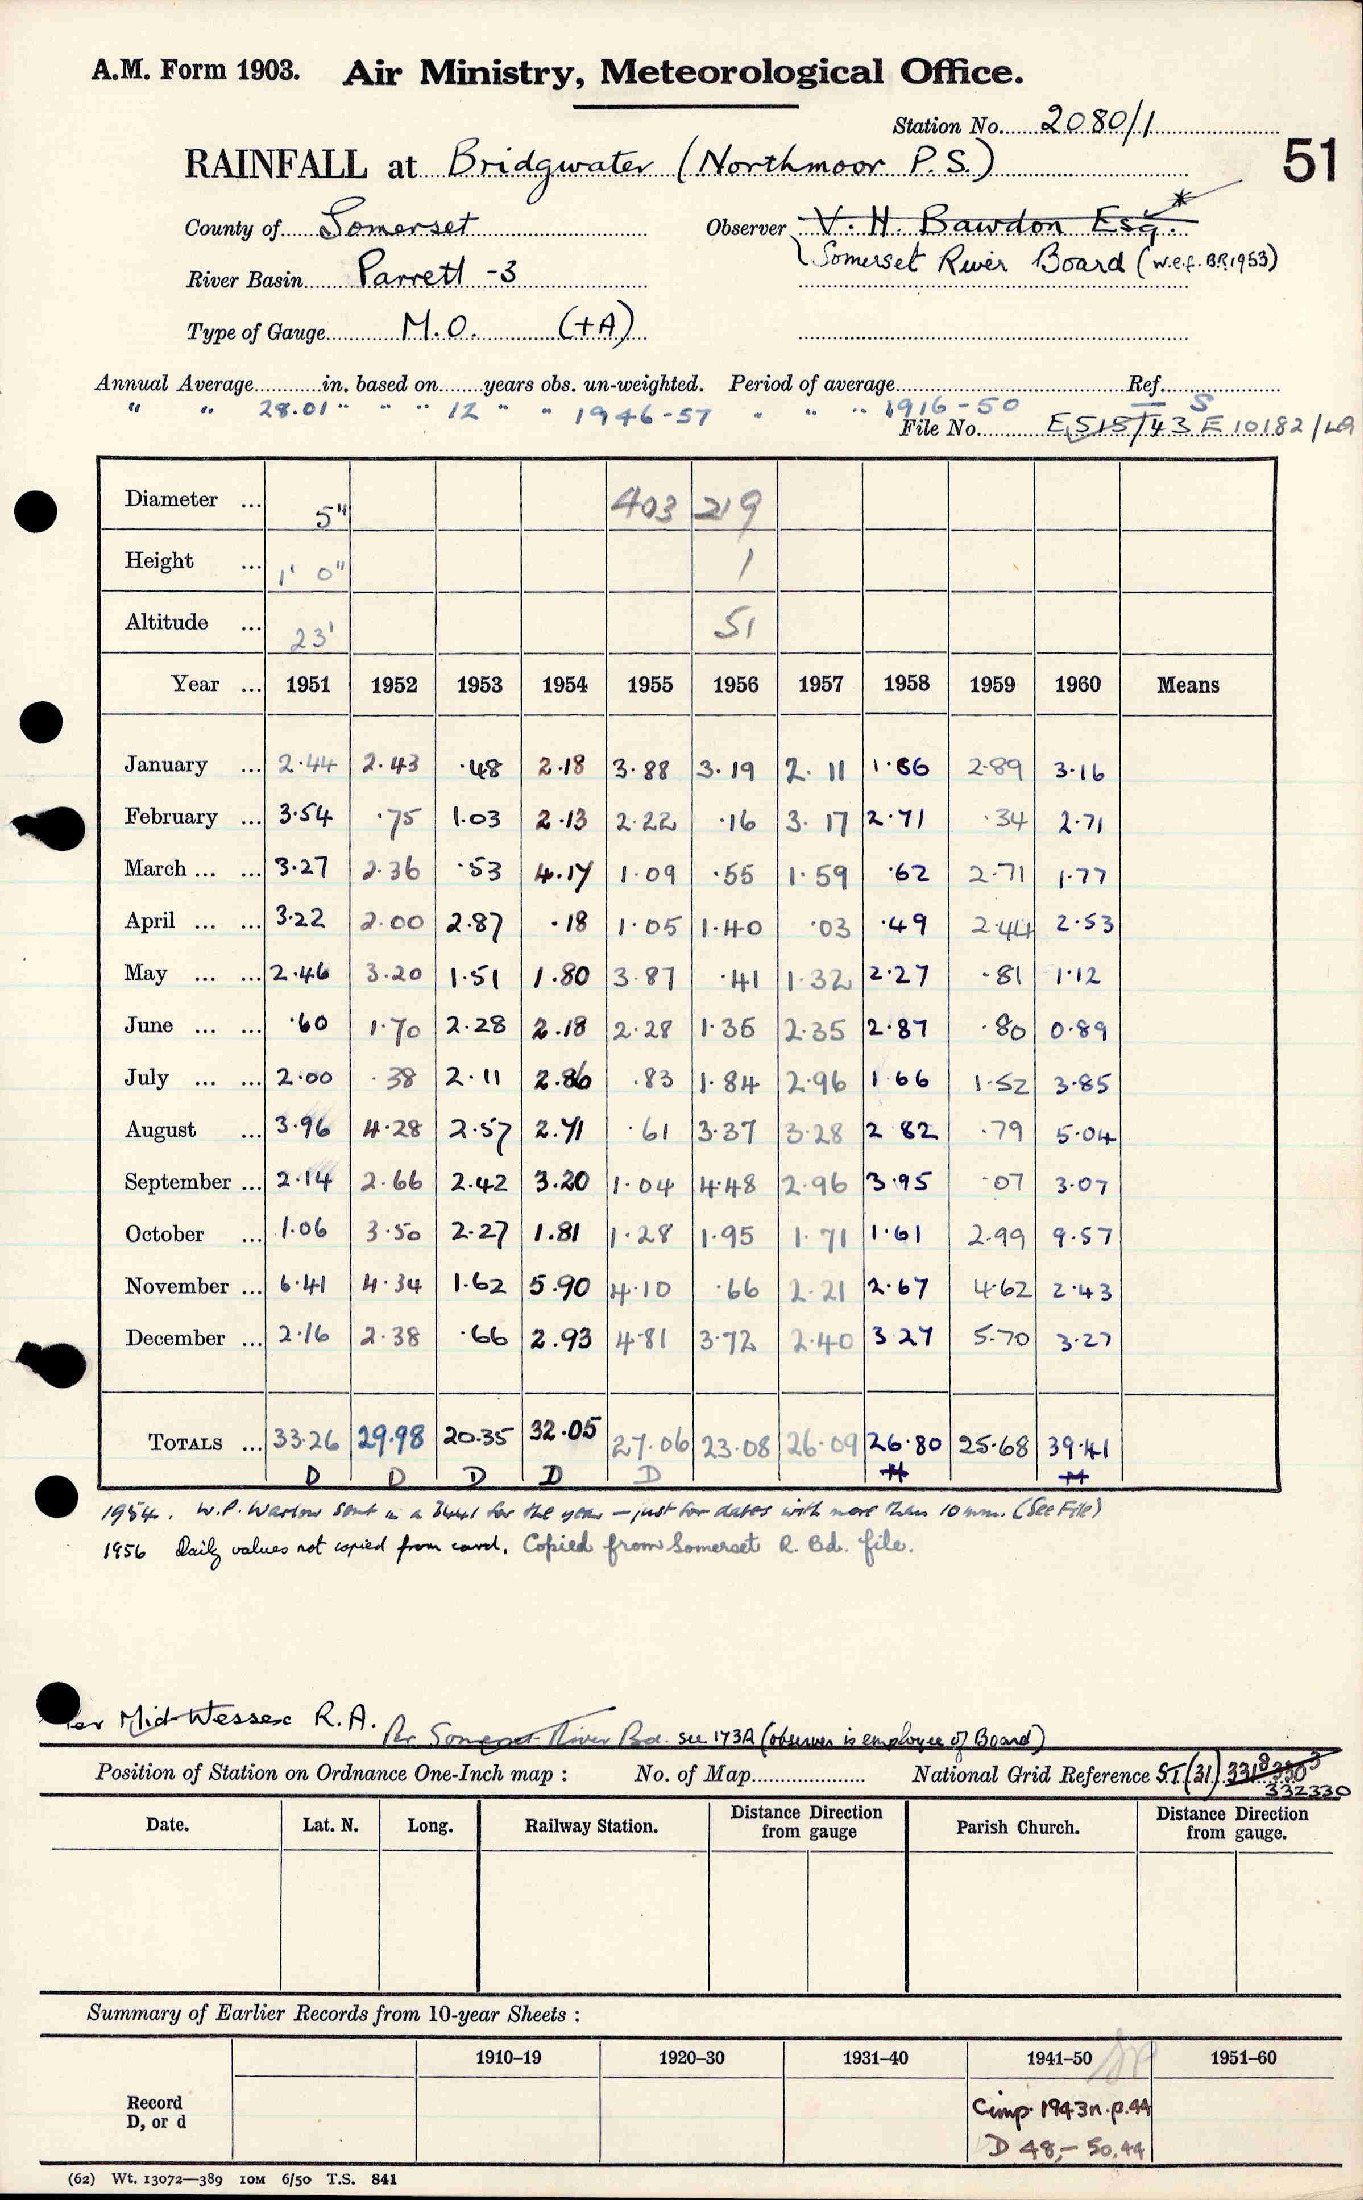 A.M. Form 1903. Air Ministry, Meteorological Office.
Station No. 2080/1
51
RAINFALL at Bridgwater (Northmoor P.S.)
County of Somerset Observer V. H. Bawdon Esq. *
River Basin Parrett -3 Somerset River Board (w.e.f. BR1953)
Type of Gauge M.O. (+A)
Annual Average in. based on years obs. un-weighted. Period of average Ref.
" " 28.01 " " " 12 " " 1946-57 " " " 1916-50 S
File No. E515/43 E 10182/
Diameter ... 5" 403 219
Height ... 1' 0" 1
Altitude ... 23' 51
Year ... 1951 1952 1953 1954 1955 1956 1957 1958 1959 1960 Means
January ... 2.44 2.43 .48 2.18 3.88 3.19 2.11 1.86 2.89 3.16
February ... 3.54 .75 1.03 2.13 2.22 .16 3.17 2.71 .34 2.71
March ... ... 3.27 2.36 .53 4.17 1.09 .55 1.59 .62 2.71 1.77
April ... ... 3.22 2.00 2.87 .18 1.05 1.40 .03 .49 2.44 2.53
May ... ... 2.46 3.20 1.51 1.80 3.87 .41 1.32 2.27 .81 1.12
June ... ... .60 1.70 2.28 2.18 2.28 1.35 2.35 2.87 .80 0.89
July ... ... 2.00 .38 2.11 2.86 .83 1.84 2.96 1.66 1.52 3.85
August ... 3.96 4.28 2.57 2.71 .61 3.37 3.28 2 82 .79 5.04
September ... 2.14 2.66 2.42 3.20 1.04 4.48 2.96 3.95 .07 3.07
October ... 1.06 3.50 2.27 1.81 1.28 1.95 1.71 1.61 2.99 9.57
November ... 6.41 4.34 1.62 5.90 4.10 .66 2.21 2.67 4.62 2.43
December ... 2.16 2.38 .66 2.93 4.81 3.72 2.40 3.27 5.70 3.27
TOTALS ... 33.26 29.98 20.35 32.05 27.06 23.08 26.09 26.80 25.68 39.41
D D D D D M M
1954. W.P. Warlow sent in a 3441 for the year — just for dates with more than 10 mm. (See File)
1956 Daily values not copied from card. Copied from Somerset R. Bd. file.
per Mid Wessex R.A. Per Somerset River Bd. see 173A (observer is employee of Board)
Position of Station on Ordnance One-Inch map : No. of Map National Grid Reference S.T. (31) 3318 3303
332330
Date. Lat. N. Long. Railway Station. Distance Direction from gauge Parish Church. Distance Direction from gauge.
Summary of Earlier Records from 10-year Sheets :
1910–19 1920–30 1931–40 1941–50 1951–60
Record
D, or d
Cimp. 1943n.p.44
D 48,- 50,44
(62) Wt. 13072—389 10M 6/50 T.S. 841